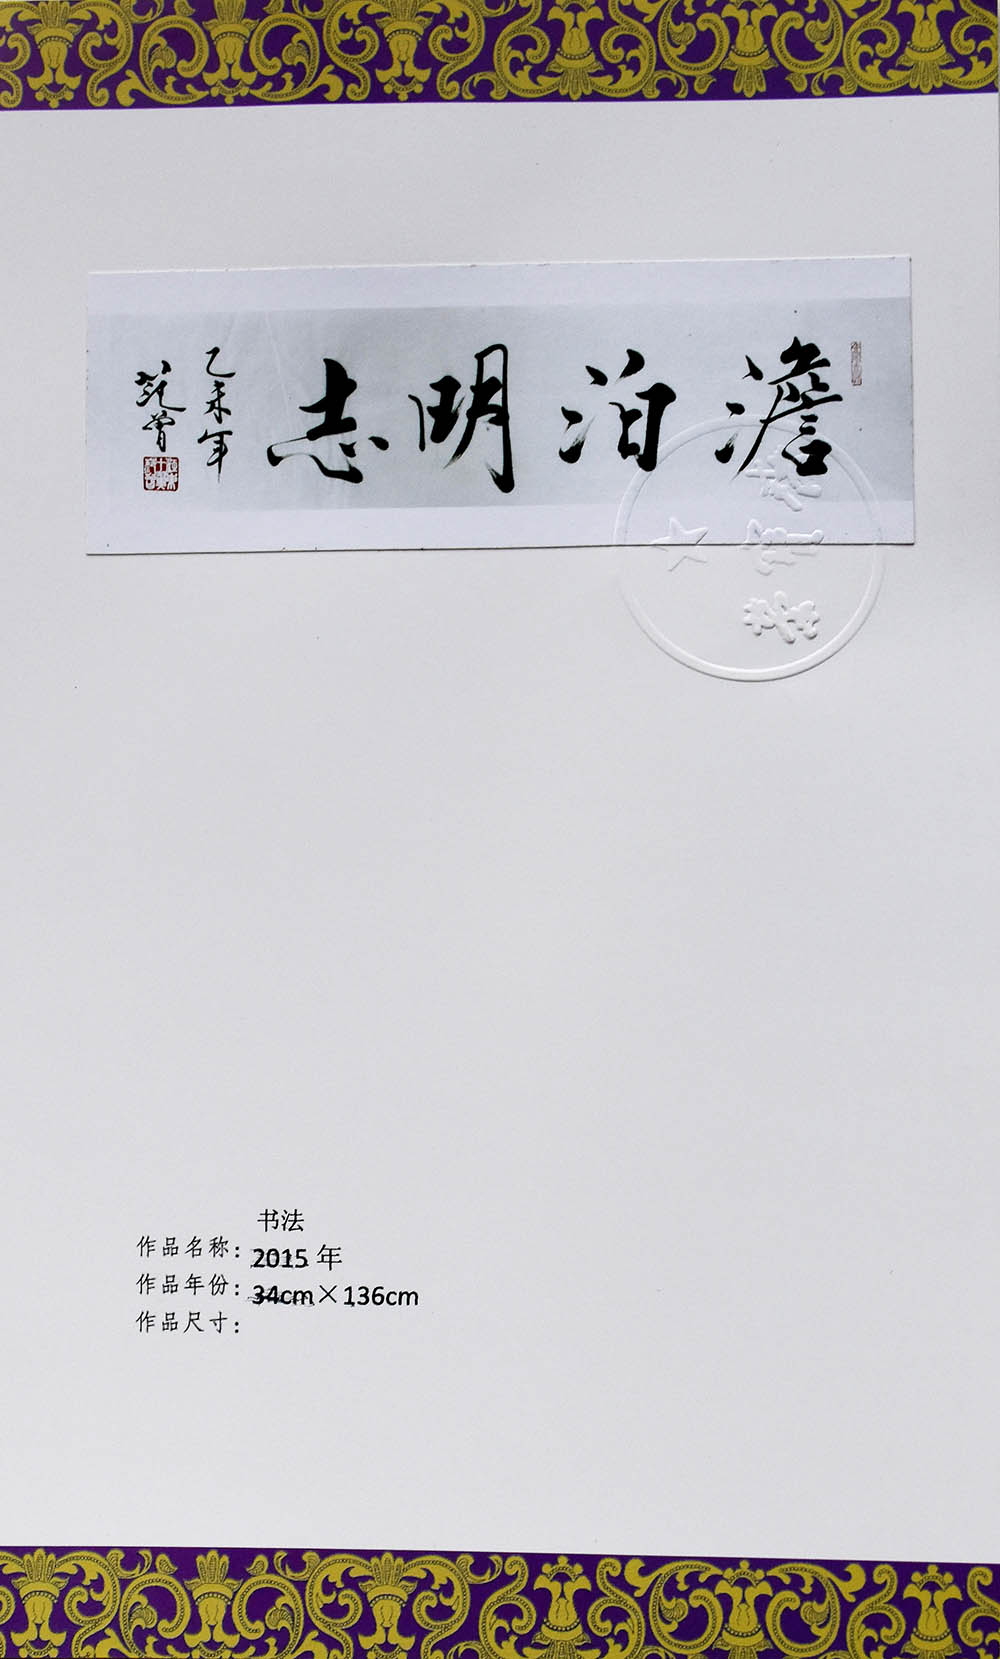 澹泊明志
乙未年
范曾
书法
作品名称：2015 年
作品年份：34cm×136cm
作品尺寸：